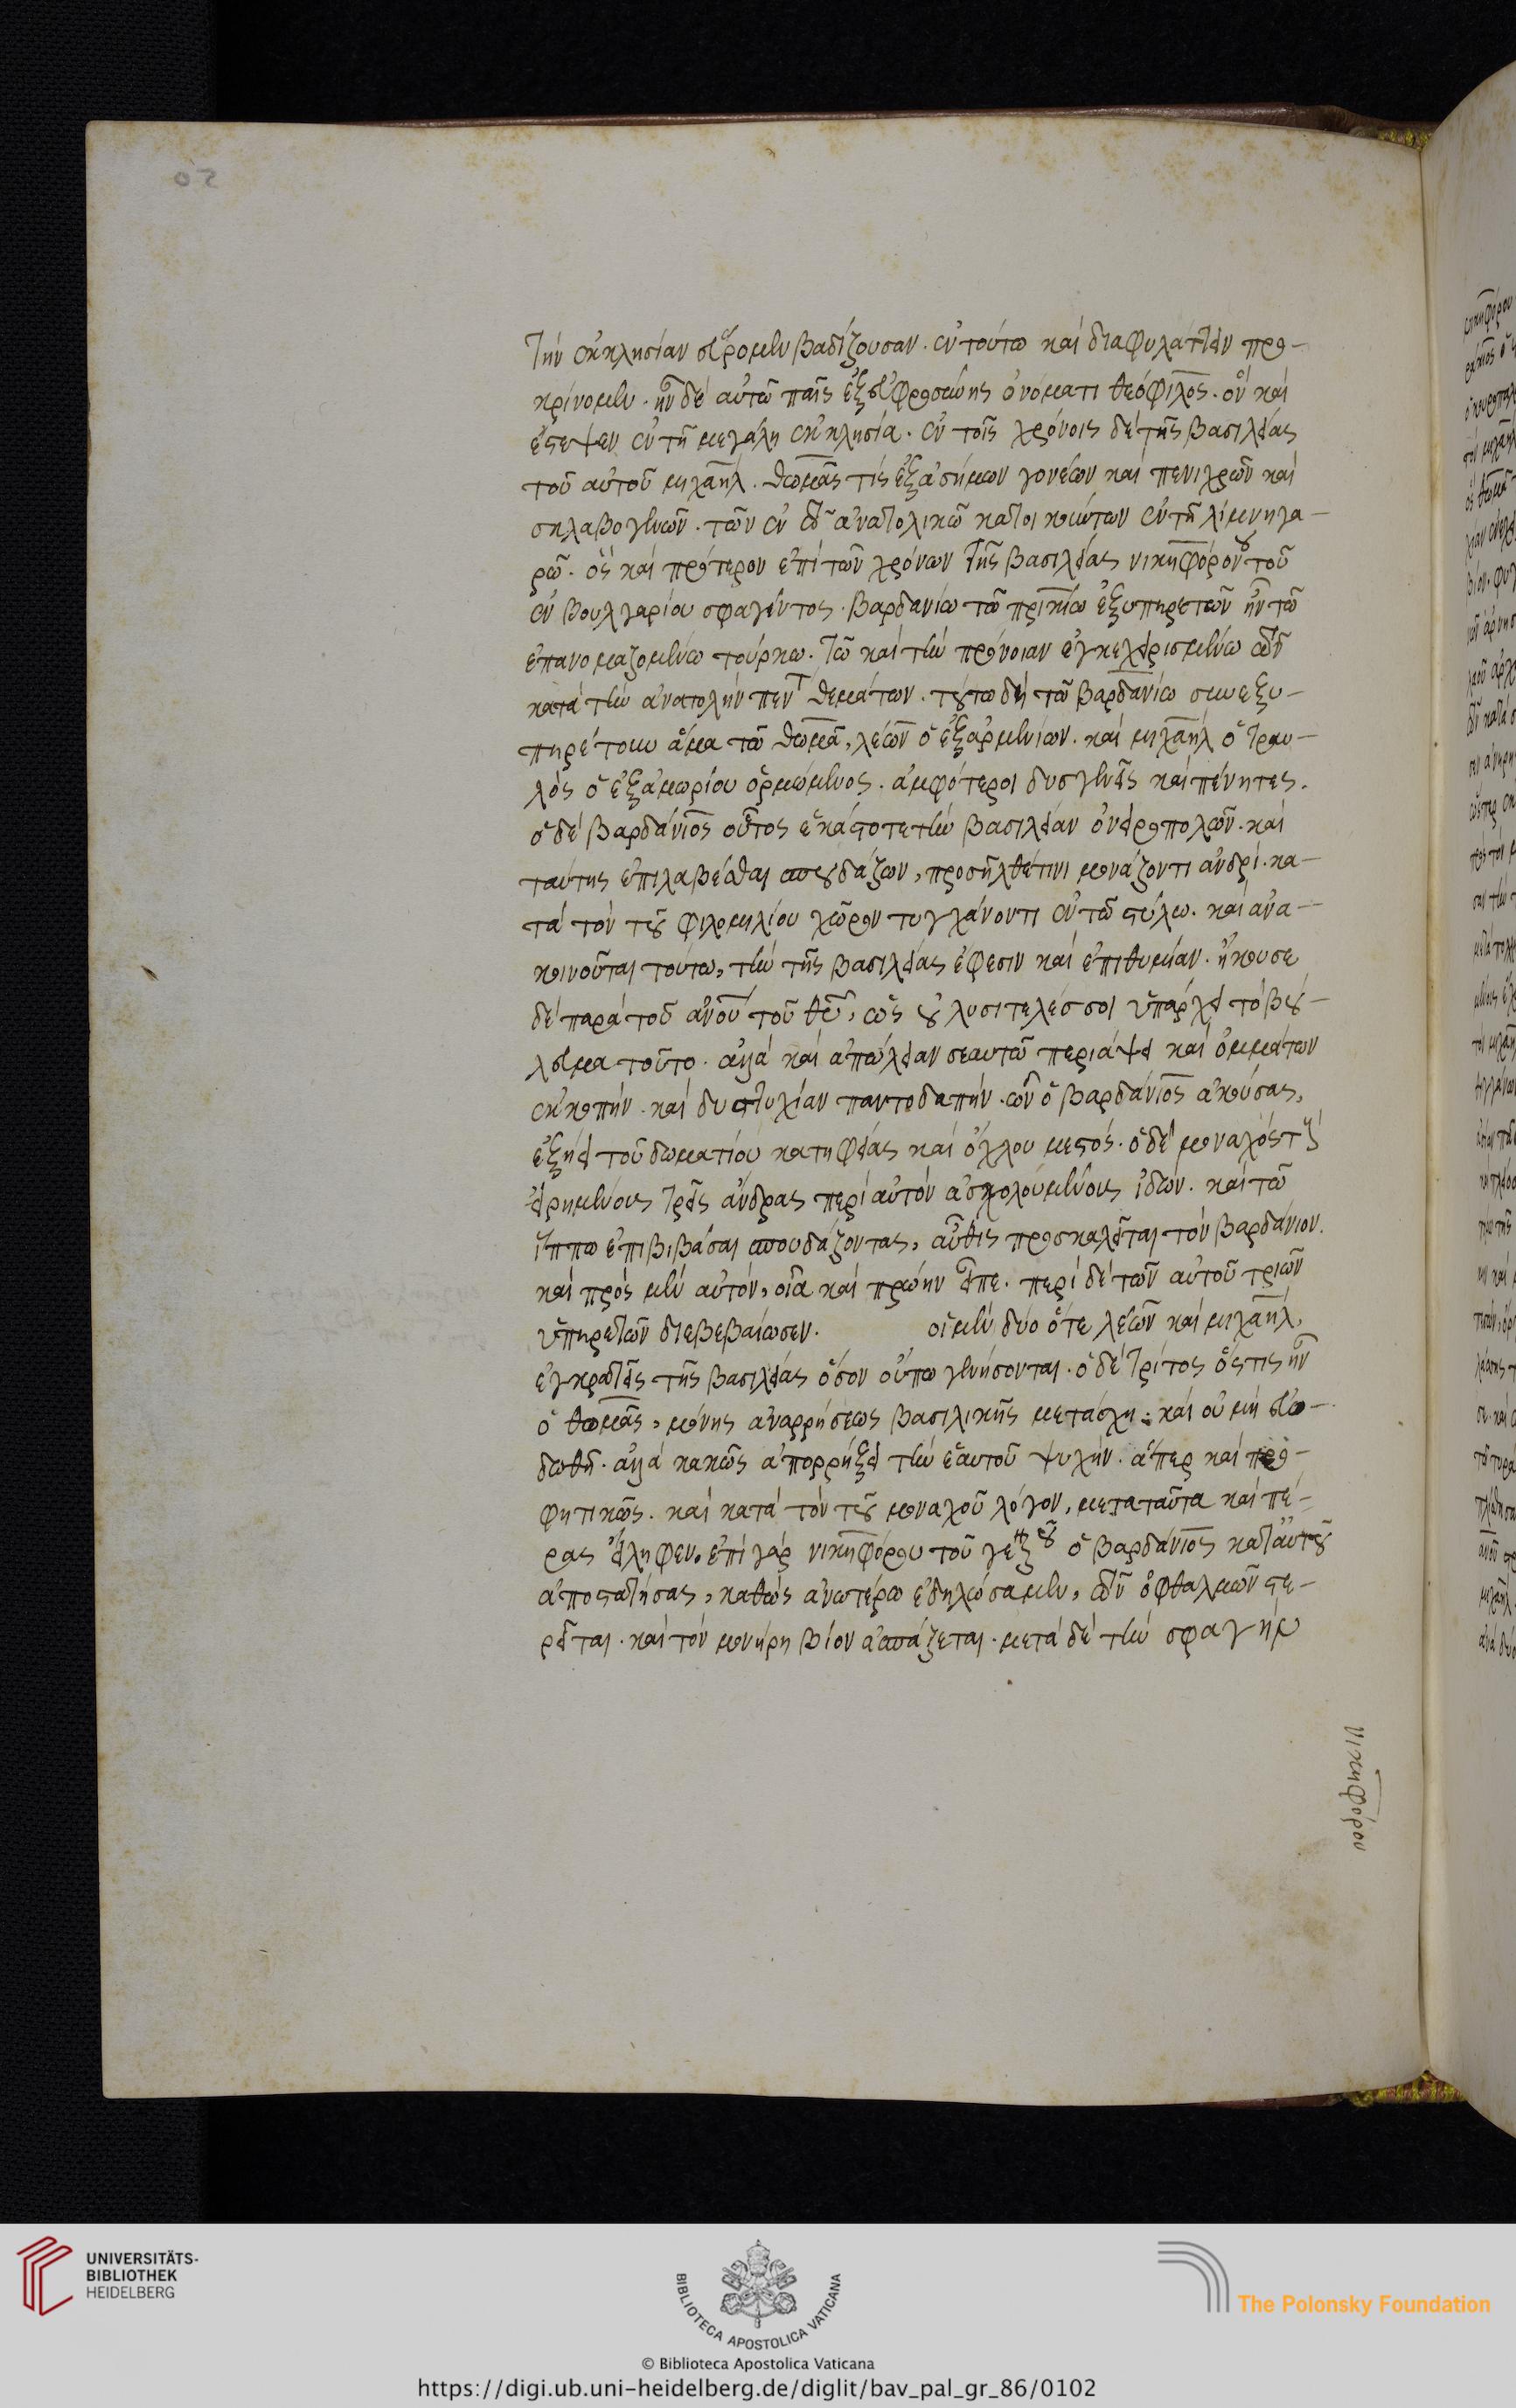 τὴν ἐκκλησίαν εὕρομεν βαδίζουσαν. ἐν τούτω καὶ διαφυλάττειν προ-
κρίνομεν. ἦν δὲ αὐτῶ παῖς ἐξ εὐφροσύνης ὀνόματι θεόφιλος. ὃν καὶ
ἔστεψεν ἐν τῆ μεγάλη ἐκκλησία. ἐν τοῖς χρόνοις δὲ τῆς βασιλείας
τοῦ αὐτοῦ μιχαὴλ. θωμᾶς τίς ἐξ ἀσήμων γονέων καὶ πενιχρῶν καὶ
σκλαβογενῶν. τῶν ἐν τῶ ἀνατολικῶ κατοικούντων ἐν τῆ λίμνη γα-
ρῶ. ὃς καὶ πρότερον ἐπὶ τῶν χρόνων τῆς βασιλείας νικηφόρου τοῦ
ἐν βουλγαρίου σφαγέντος. βαρδανίω τῶ πρικίω ἐξυπηρετῶν ἦν τῶ
ἐπανομαζομένω τούρκω. τῶ καὶ τὴν πρόνοιαν ἐγκεχειρισμένω τῶν
κατὰ τὴν ἀνατολὴν πεντ θεμάτων. τούτω δὴ τῶ βαρδανίω συνεξυ-
πηρέτουν ἅμα τῶ θωμᾶ, λέων ὁ ἐξ ἀρμενίων. καὶ μιχαὴλ ὁ τραυ-
λὸς ὁ ἐξ ἀμωρίου ὁρμώμενος. ἀμφότεροι δυσγενεῖς καὶ πένητες.
ὁ δὲ βαρδάνιος οὗτος ἑκάστοτε τὴν βασιλείαν ὀνειροπολῶν. καὶ
ταύτης ἐπιλαβέσθαι σπουδάζων, προσῆλθέ τινι μονάζοντι ἀνδρί. κα-
τὰ τὸν τοῦ φιλομιλίου χῶρον τυγχάνοντι ἐν τῶ στύλω. καὶ ἀνα-
κοινοῦται τούτω, τὴν τῆς βασιλείας ἔφεσιν καὶ ἐπιθυμίαν. ἤκουσε
δὲ παρὰ τοῦ ἀνοῦ τοῦ θεοῦ, ὡς οὐ λυσιτελές σοι ὑπάρχει τὸ βού-
λευμα τοῦτο. ἀλλὰ καὶ ἀπώλειαν σεαυτῶ περιάψει καὶ ὀμμάτων
ἐκκοπήν. καὶ δυστυχίαν παντοδαπήν. ὧν ὁ βαρδάνιος ἀκούσας,
ἐξήει τοῦ δωματίου κατηφείας καὶ ὄχλου μεστός. ὁ δὲ μοναχὸς τοὺς
εἰρημένους τρεῖς ἄνδρας περὶ αὐτὸν ἀσχολουμένους ἰδὼν. καὶ τῶ
ἵππω ἐπιβιβάσαι σπουδάζοντας, αὖθις προσκαλεῖται τὸν βαρδάνιον.
καὶ πρὸς μὲν αὐτὸν, οἷα καὶ πρώην εἶπε. περὶ δὲ τῶν αὐτοῦ τριῶν
ὑπηρετῶν διεβεβαίωσεν. οἱ μὲν δύο ὅτε λέων καὶ μιχαὴλ,
ἐγκρατεῖς τῆς βασιλείας ὅσον οὔπω γενήσονται. ὁ δὲ τρίτος ὅστις ἦν
ὁ θωμᾶς, μόνης ἀναρρήσεως βασιλικῆς μετάσχη. καὶ οὐ μὴ εὐο-
δωθῆ. ἀλλὰ κακῶς ἀπορρήξει τὴν ἑαυτοῦ ψυχήν. ἅπερ καὶ προ-
φητικῶς. καὶ κατὰ τὸν τοῦ μοναχοῦ λόγον, μετὰ ταῦτα καὶ πέ-
ρας εἴληφεν. ἐπὶ γὰρ νικηφόρου τοῦ γενικοῦ ὁ βαρδάνιος κατ' αὐτοῦ
ἀποστατήσας, καθὼς ἀνωτέρω ἐδηλώσαμεν, τῶν ὀφθαλμῶν στε-
ρεῖται. καὶ τὸν μονήρη βίον ἀσπάζεται. μετὰ δὲ τὴν σφαγὴν
νικηφόρου
UNIVERSITÄTS-
BIBLIOTHEK
HEIDELBERG
BIBLIOTECA APOSTOLICA VATICANA
The Polonsky Foundation
© Biblioteca Apostolica Vaticana
https://digi.ub.uni-heidelberg.de/diglit/bav_pal_gr_86/0102